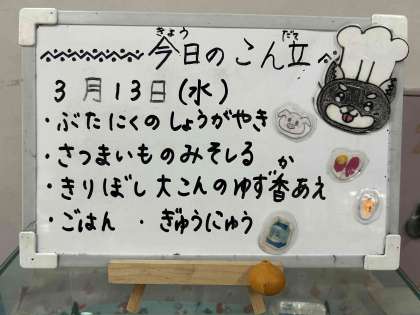 今日のこん立
3月13日(水)
・ぶたにくのしょうがやき
・さつまいものみそしる
・きりぼし大こんのゆず香あえ
・ごはん ・ぎゅうにゅう